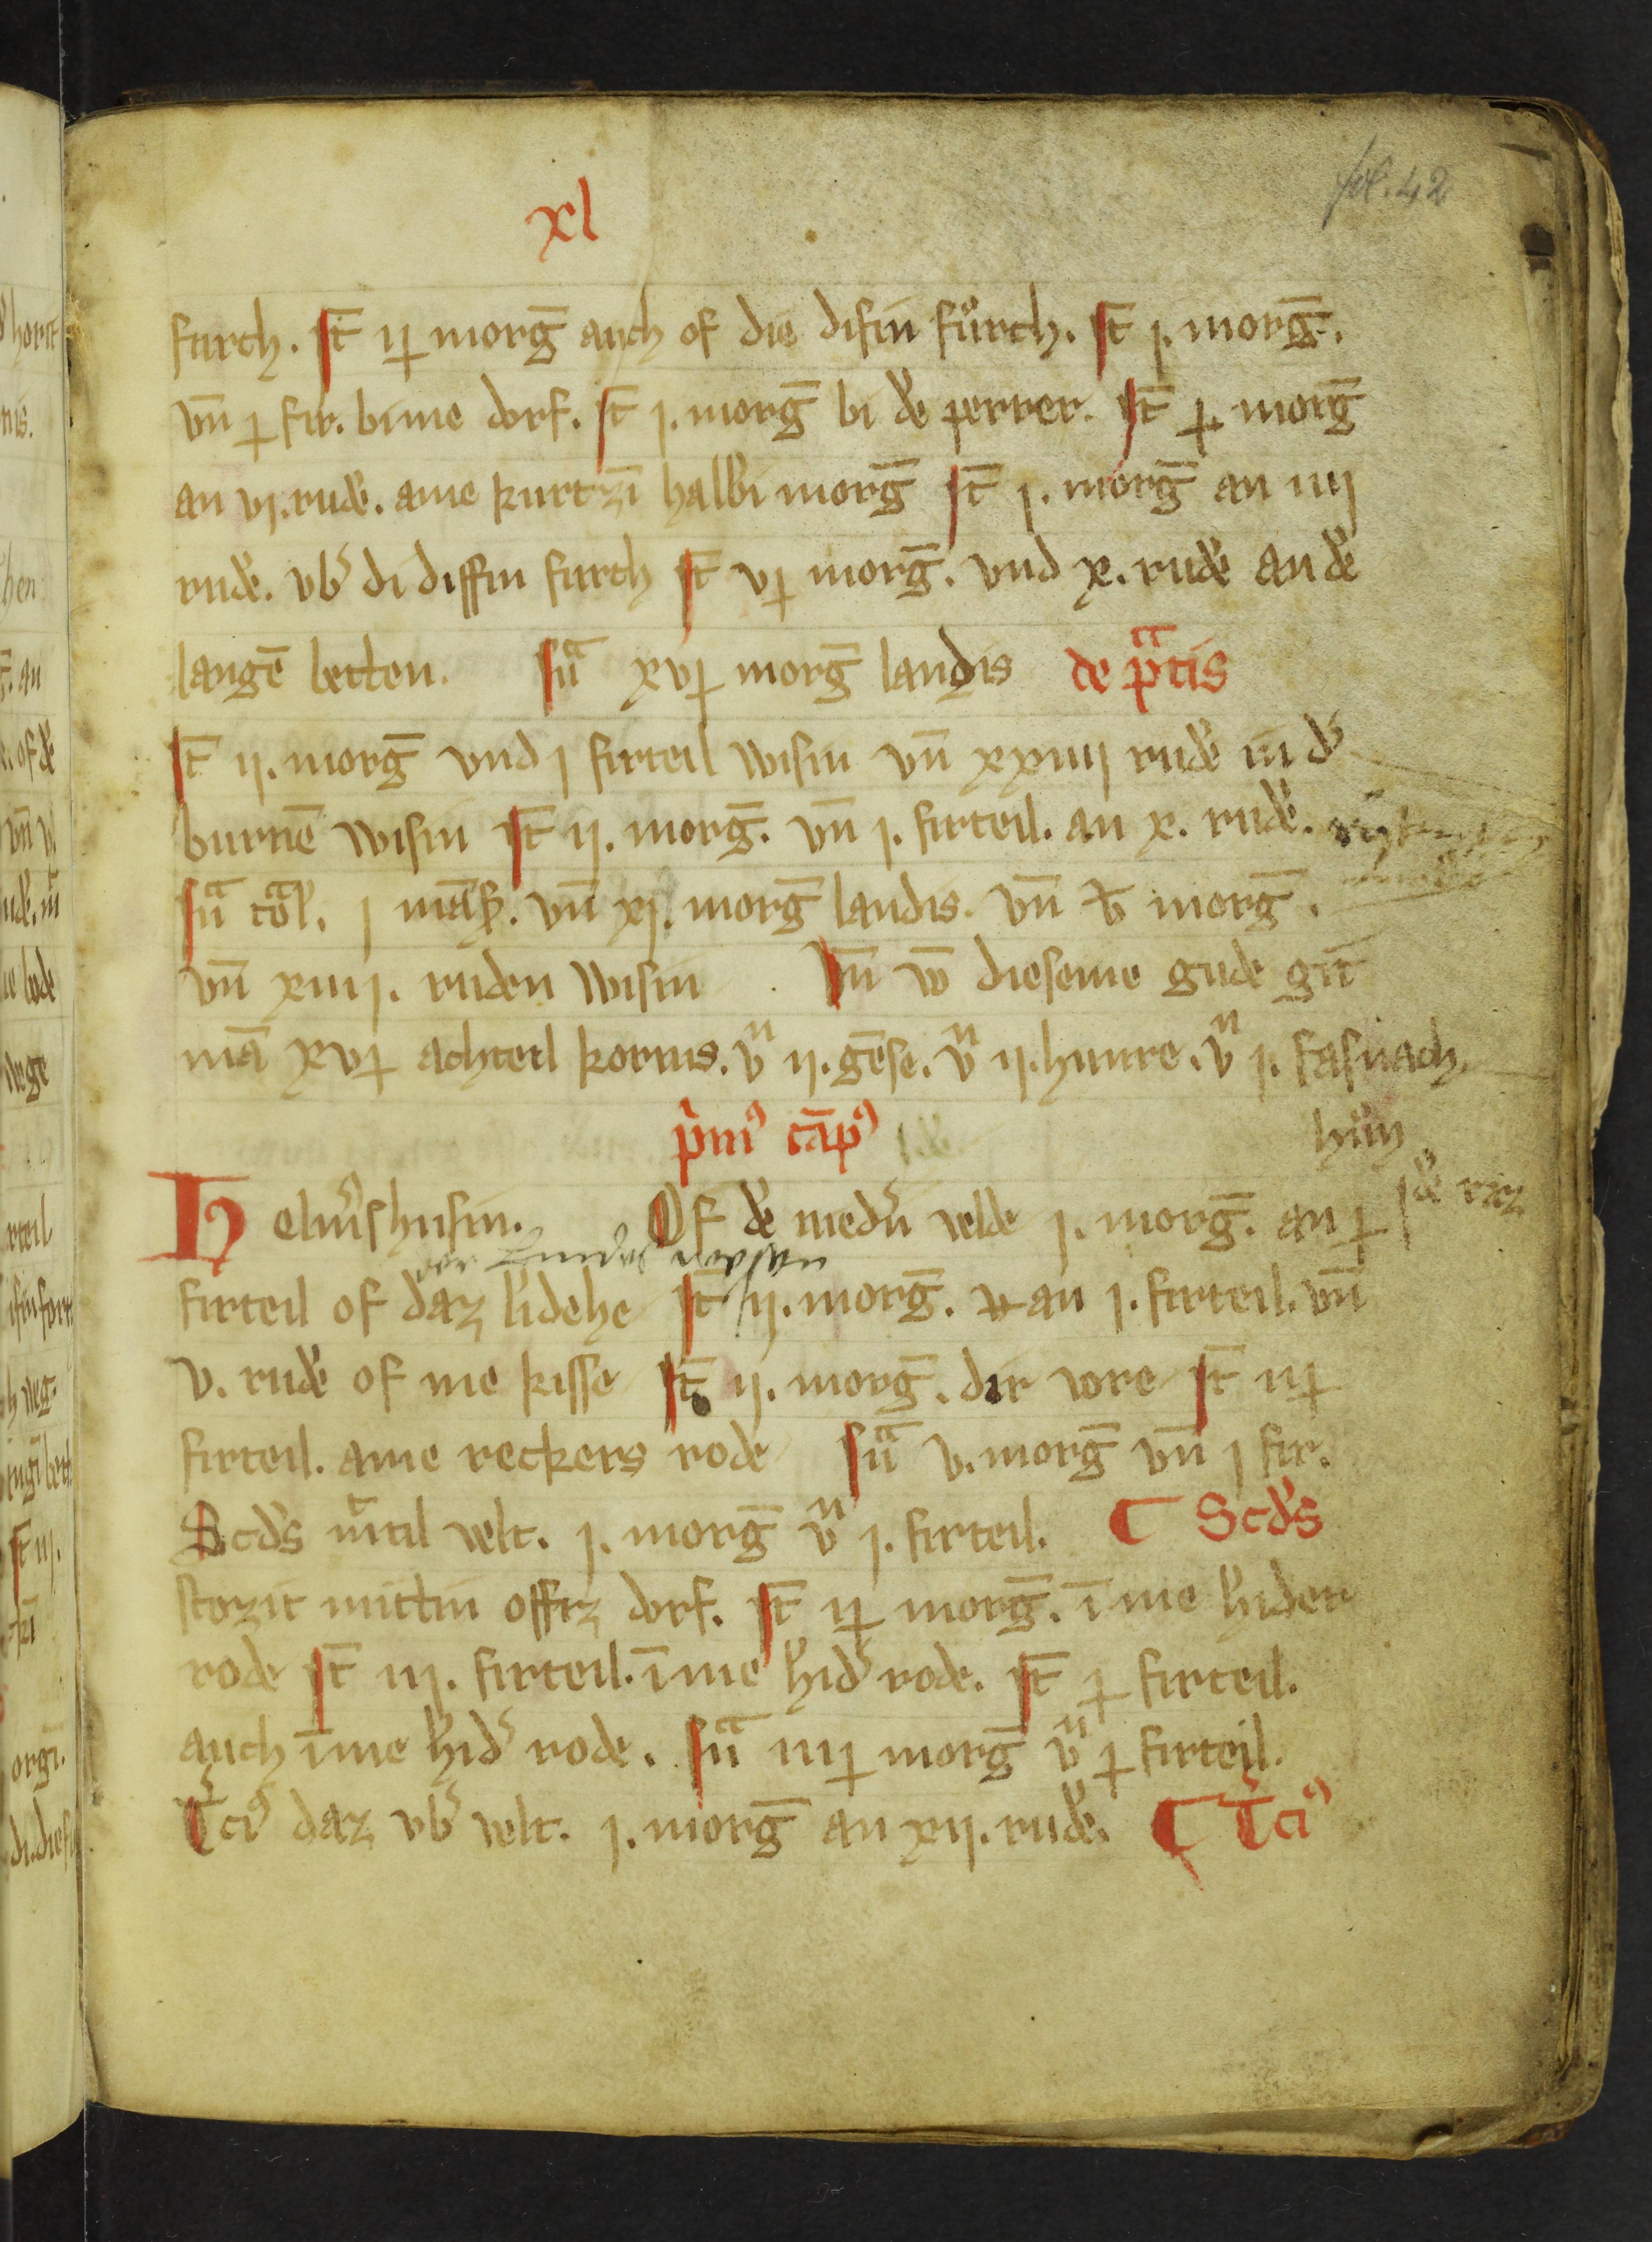 fol. 42
xl
furch. st̄ ij morḡ auch of die difin fůrch. st̄ j. morḡ.
vn̄ j fir. bime dorf. st̄ j. morḡ bi dē perrer. st̄ j morḡ
an vj. rudē. ame kurtzī halbī morḡ st̄ j. morḡ an iiij
rudē. vb᷑ di diffin furch st̄ vj morḡ. vnd x. rudē an dē
langē betten. sūa xvj morḡ landis de patis
st̄ ij. morḡ vnd j firteil wisin vn̄ xxiiij rudē in d᷑
burnē wisin st̄ ij. morḡ. vn̄ j. firteil. an x. rudē.
sūa toal. j māß. vn̄ xj. morḡ landis. vn̄ v morḡ.
vn̄ xiiij. rüden wisin vn̄ vō dieseme gude git
mā xvj achteil kornis. vn ij. gēse. vn ij. hunre. vn j. fasnach
hůn
pimꝰ cāpꝰ
Helm᷑shusin. Of dē nedn᷑ velde j. morḡ. an j
firteil of daz lidehe st̄ ij. morḡ. an j. firteil. vn̄
v. rudē of me kisse st̄ ij. morḡ. dir vore st̄ iij
firteil. ame reckers rode sūa v. morḡ vn̄ j fir.
Scd᷑s mitil velt. j. morḡ vn j. firteil. ¶ Scd᷑s
stozit mittin offiz dorf. st̄ ij morḡ. ī me hider
rode st̄ iij. firteil. ī me hid᷑ rode. st̄ j firteil.
auch ī me hid᷑ rode. sūa iiij morḡ vn j firteil.
T᷑ciꝰ daz vb᷑ velt. j. morḡ an xij. rudē. ¶ T᷑ciꝰ